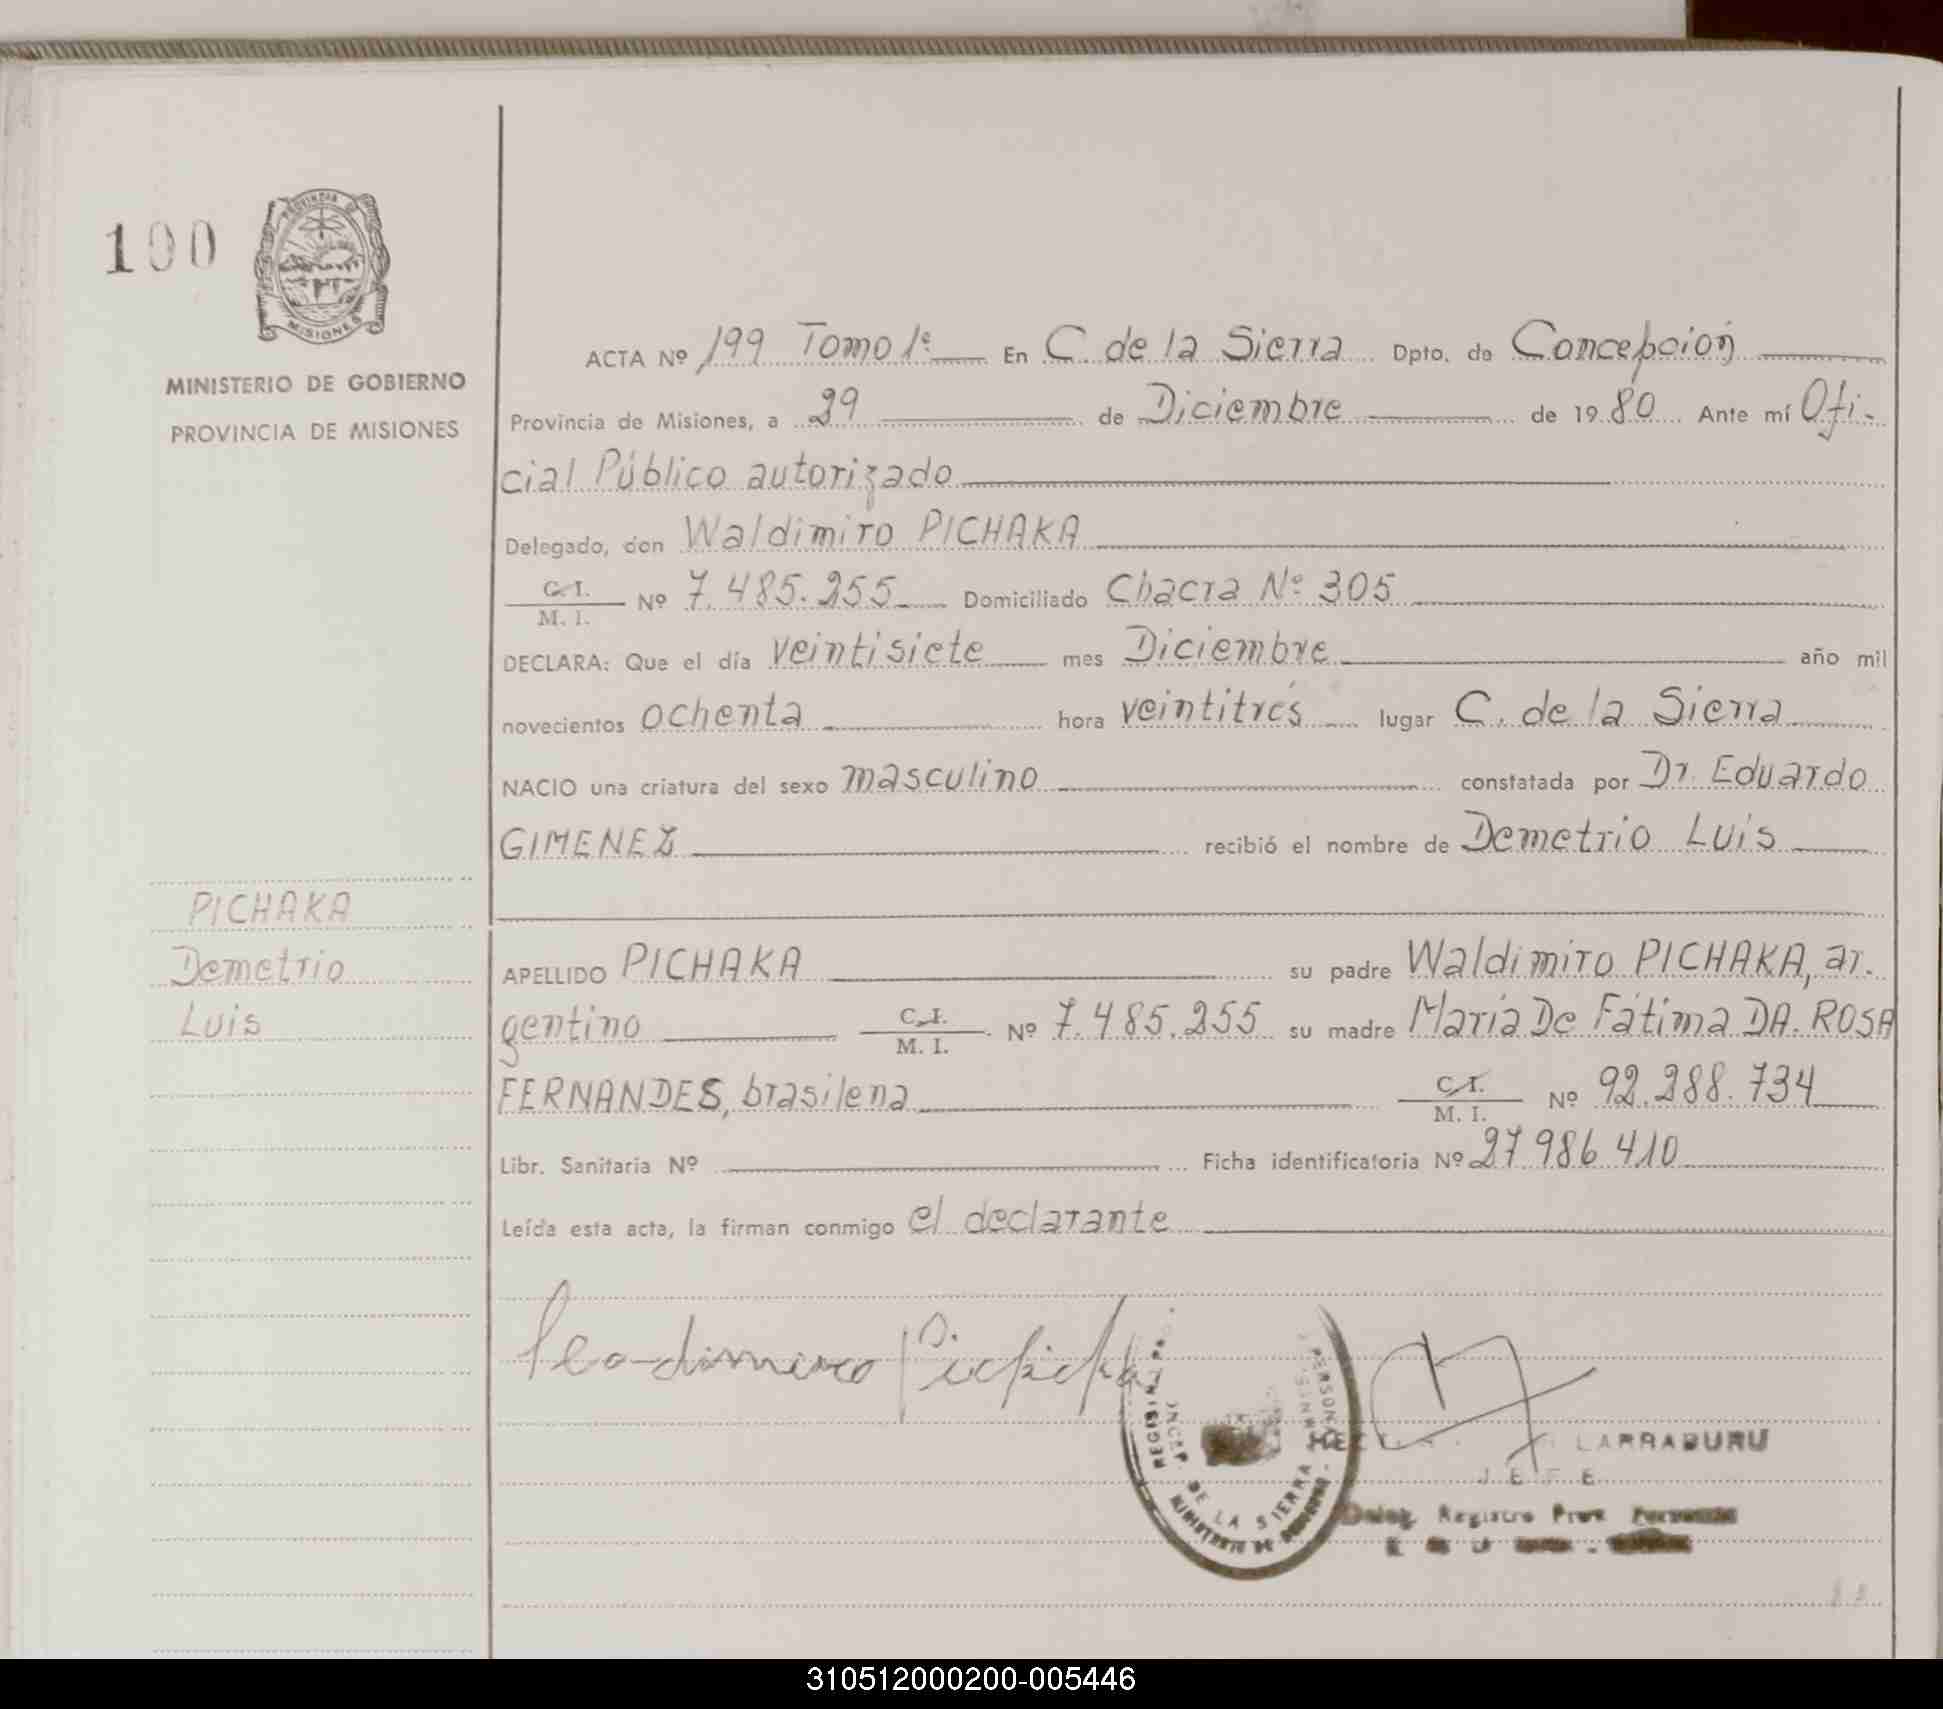 100
PROVINCIA DE
MISIONES
MINISTERIO DE GOBIERNO
PROVINCIA DE MISIONES
ACTA Nº 199 Tomo 1º En C. de la Sierra Dpto. de Concepción
Provincia de Misiones, a 29 de Diciembre de 1980 Ante mí Ofi-
cial Público autorizado
Delegado, don Waldimiro PICHAKA
C.I. M. I. Nº 7.485.255 Domiciliado Chacra Nº 305
DECLARA: Que el día veintisiete mes Diciembre año mil
novecientos ochenta hora veintitrés lugar C. de la Sierra
NACIO una criatura del sexo masculino constatada por Dr. Eduardo
GIMENEZ recibió el nombre de Demetrio Luis
PICHAKA
Demetrio
Luis
APELLIDO PICHAKA su padre Waldimiro PICHAKA, ar.
gentino C.I. M. I. Nº 7.485.255 su madre María De Fátima DA. ROSA
FERNANDES, brasilena C.I. M. I. Nº 92.288.734
Libr. Sanitaria Nº Ficha identificatoria Nº 27 986 410
Leída esta acta, la firman conmigo el declarante
DE LA SIERRA
LARRABURU
JEFE
Deleg. Registro Prov. Personas
310512000200-005446